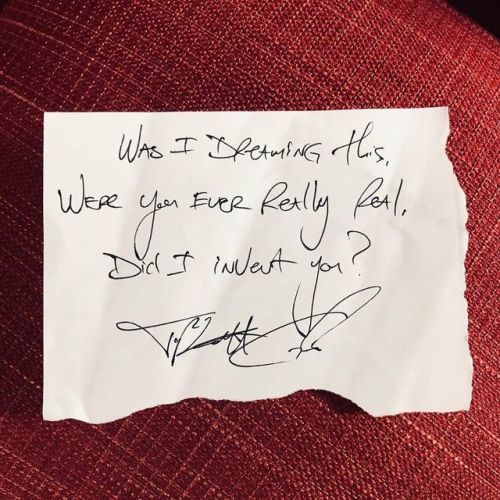 Was I Dreaming this,
Were you Ever Really Real,
Did I invent you?